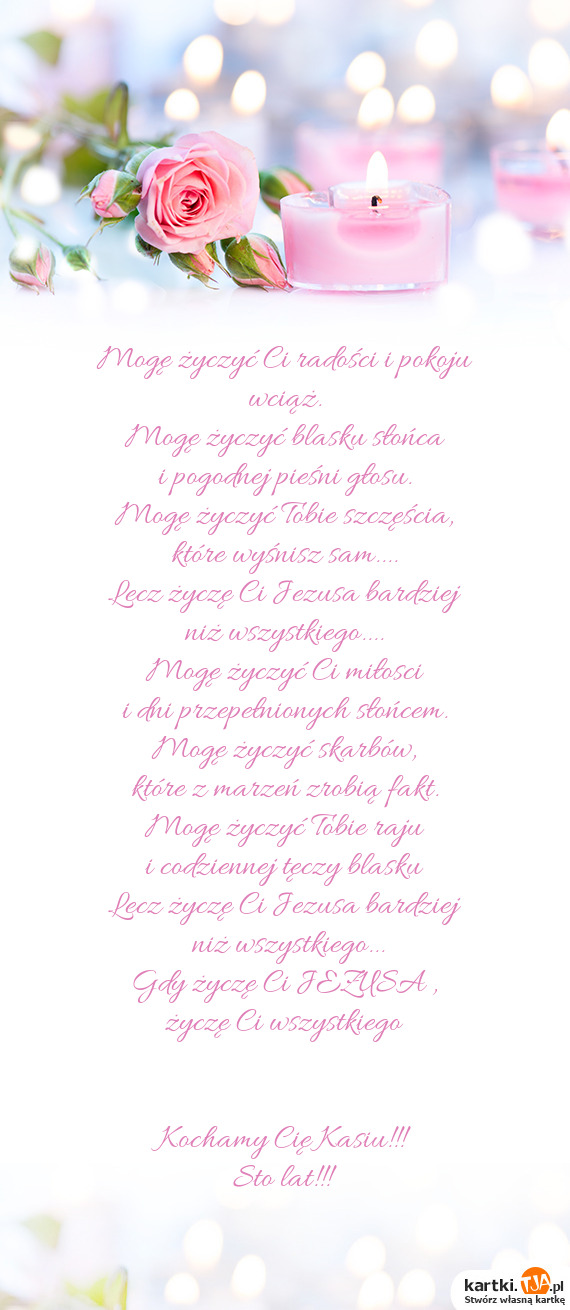 Mogę życzyć Ci radości i pokoju
wciąż.
Mogę życzyć blasku słońca
i pogodnej pieśni głosu.
Mogę życzyć Tobie szczęścia,
które wyśnisz sam....
Lecz życzę Ci Jezusa bardziej
niż wszystkiego....
Mogę życzyć Ci miłosci
i dni przepełnionych słońcem.
Mogę życzyć skarbów,
które z marzeń zrobią fakt.
Mogę życzyć Tobie raju
i codziennej tęczy blasku
Lecz życzę Ci Jezusa bardziej
niż wszystkiego...
Gdy życzę Ci JEZUSA ,
życzę Ci wszystkiego
Kochamy Cię Kasiu!!!
Sto lat!!!
kartki.TJA.pl
Stwórz własną kartkę